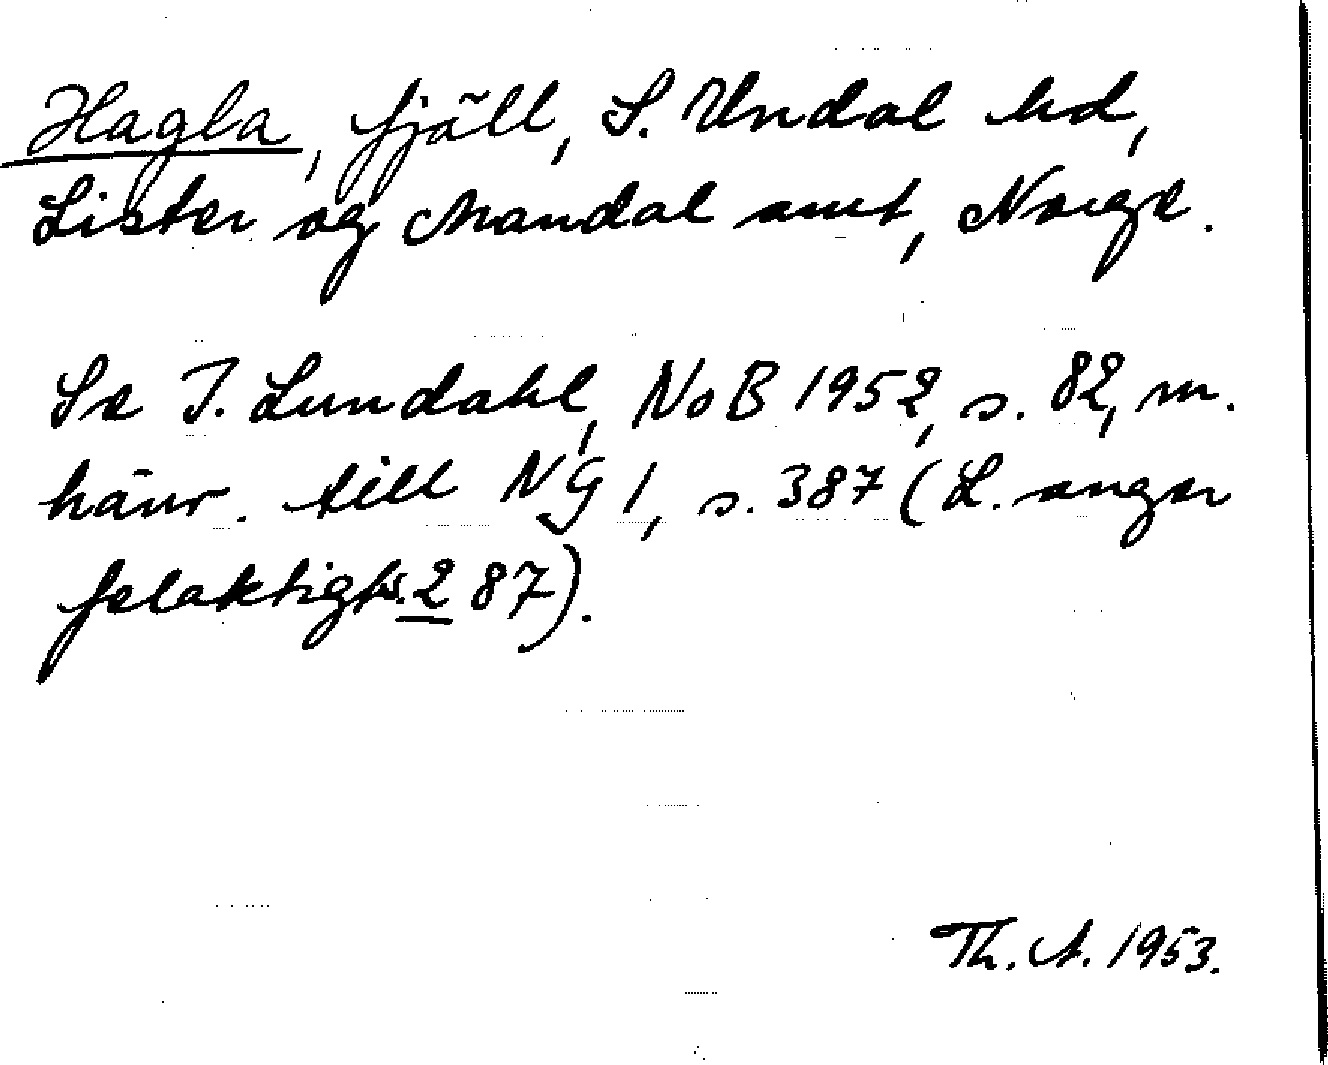 Hagla, fjäll, S. Undal hd,
Lister og Mandal amt, Norge.
Se I. Lundahl, NoB 1952, s. 82, m.
hänv. till NG 1, s. 387 (L. anger
felaktigt s. 287).
Th. A. 1953.